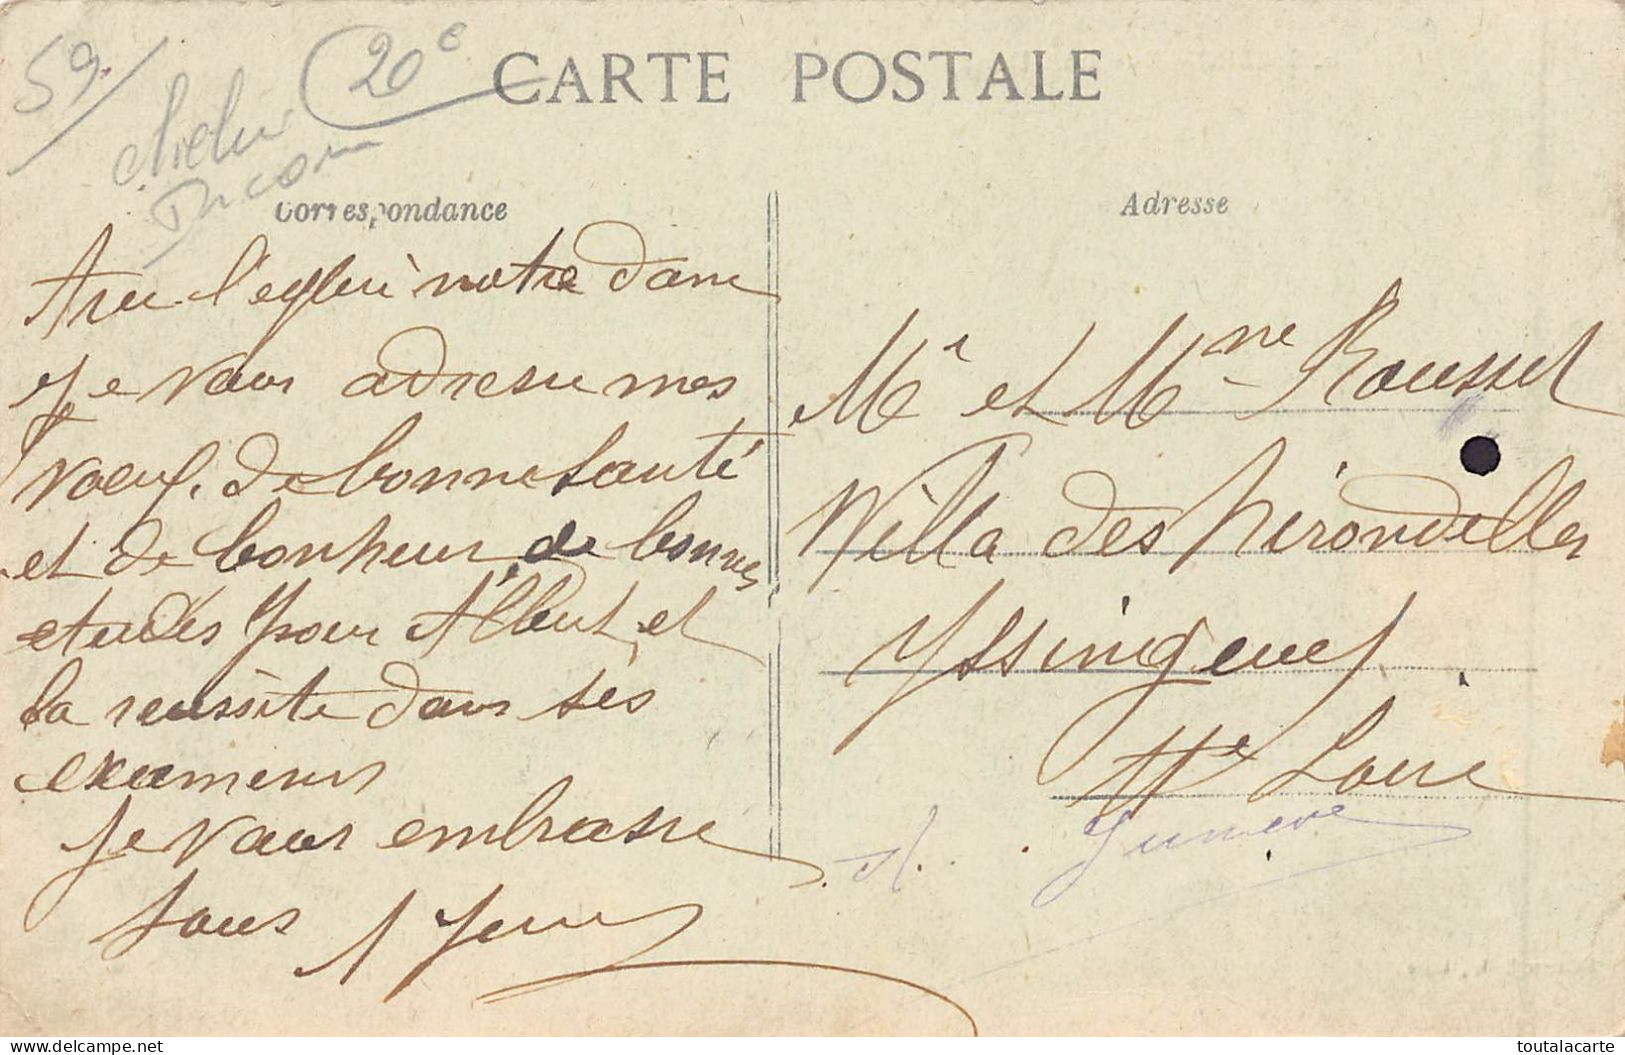 59
20e
CARTE POSTALE
Correspondance
Adresse
l'eglise notre dame
Je vous adresse mes
voeux de bonne santé
et de bonheur de bonnes
etudes pour Albert et
la reussite dans ses
examens
Je vous embrasse
tous
Mr et Mme Roussel
Villa des hirondelles
Yssingeux
Hte Loire
toutalacarte
www.delcampe.net